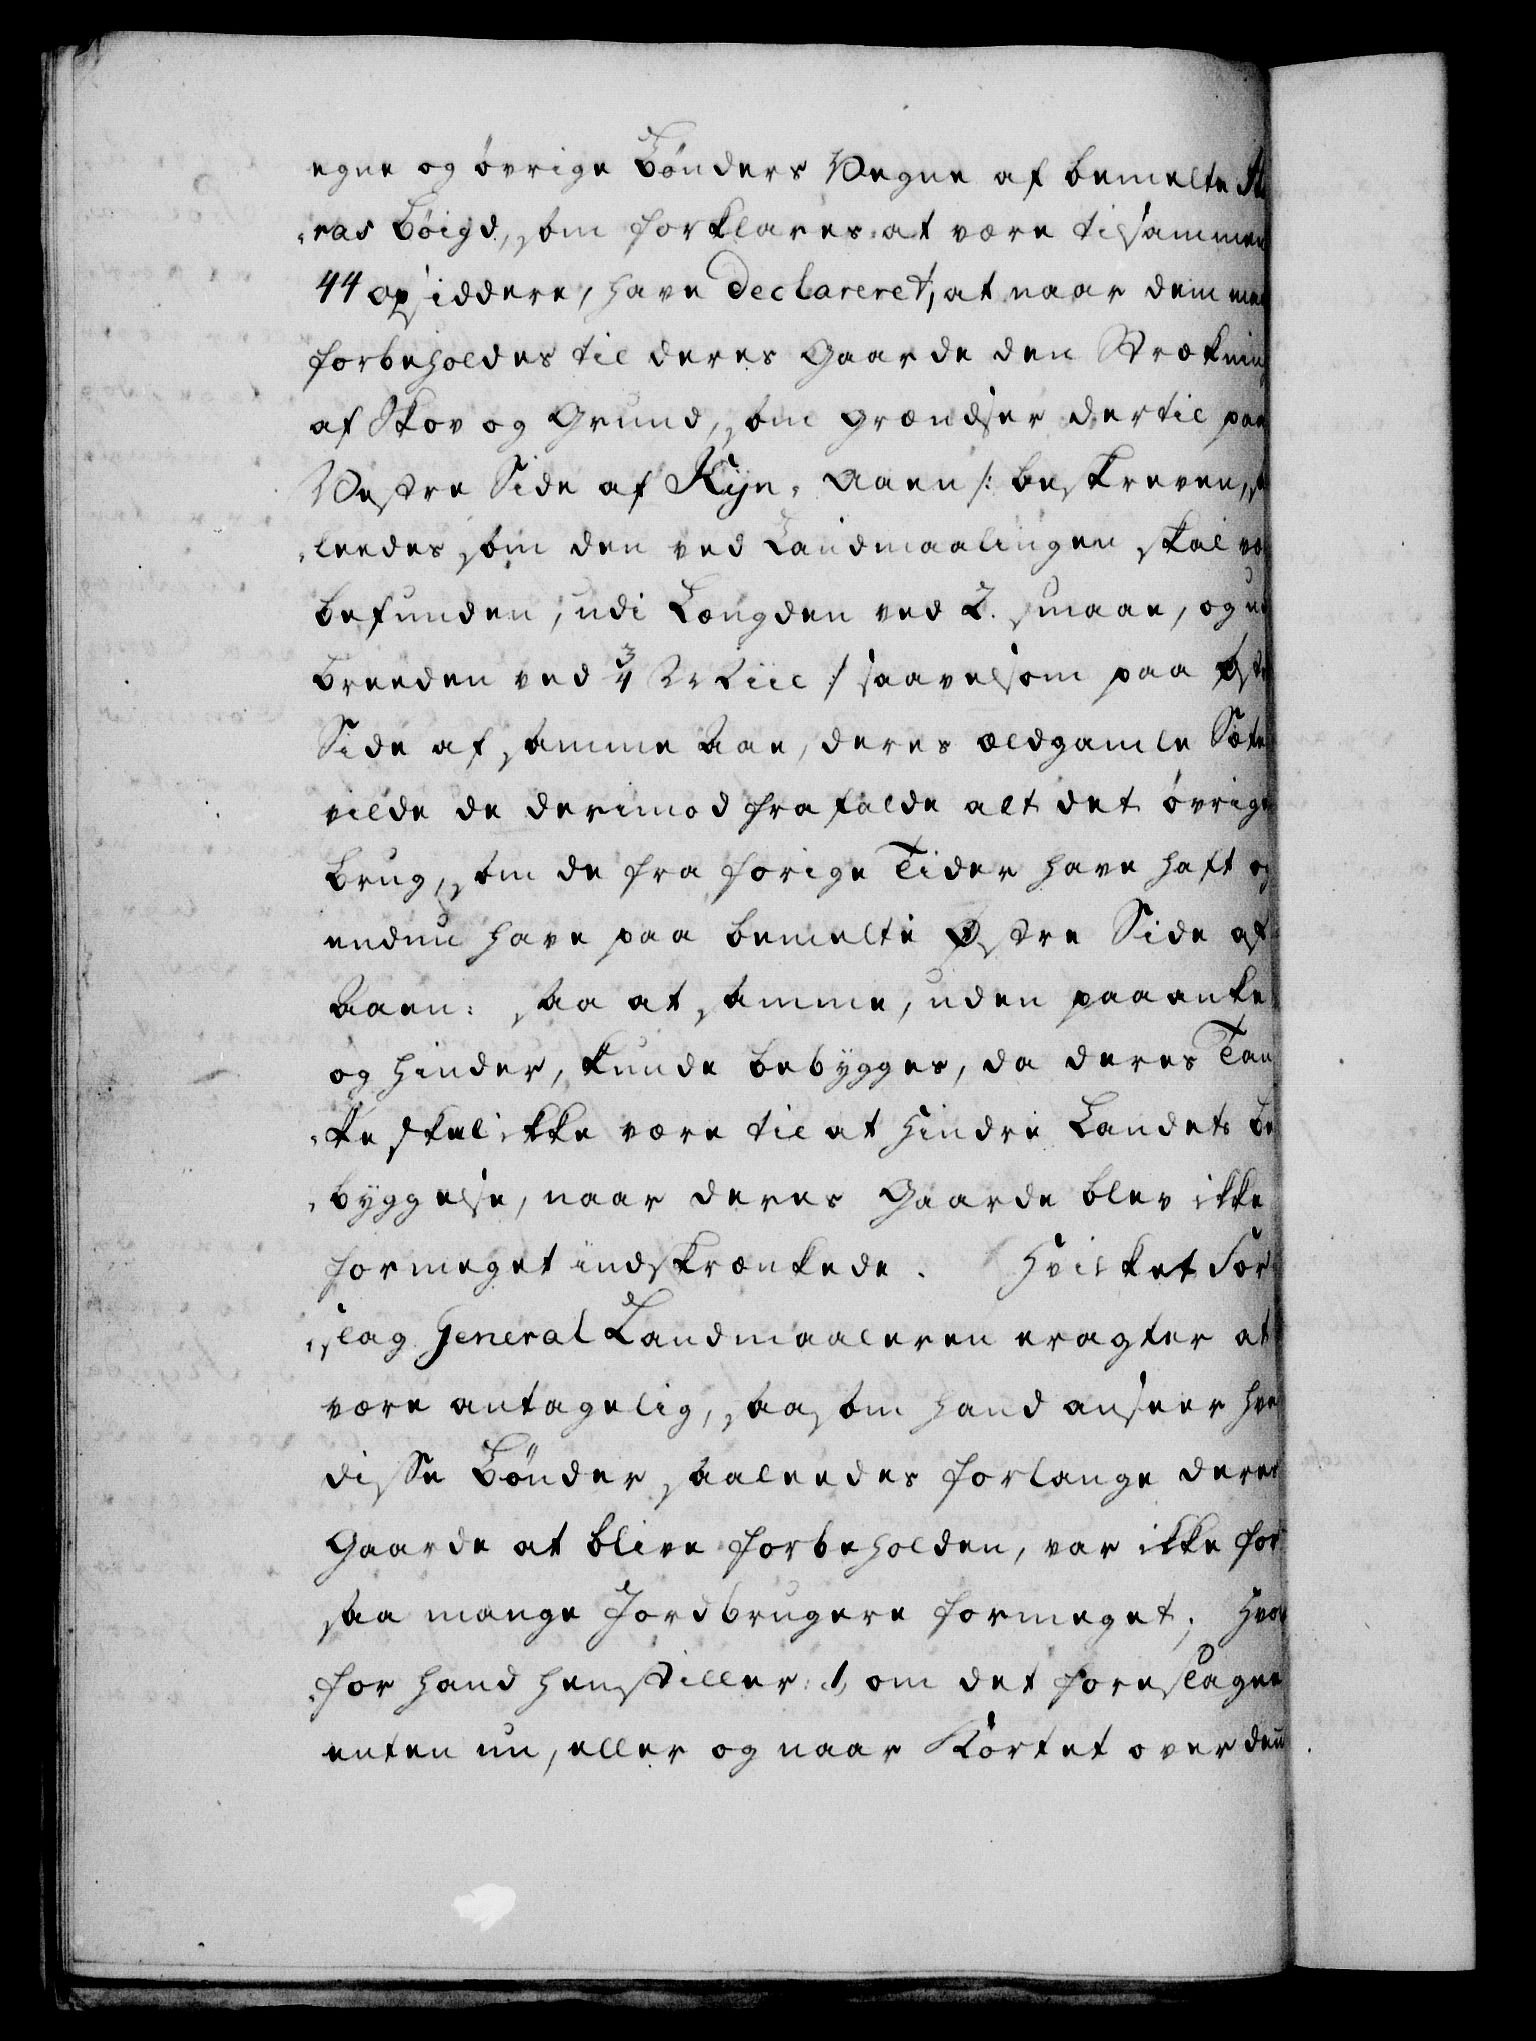 egne og øvrige Bønders Vegne af bemelte
„ras Bøigd, som forklares at være tilsammen
44 opsiddere, have Declareret, at naar dem
forbeholdes til deres Gaarde den Strækning
af Skov og Grund, som grændser dertil paa
Vestre Side af Rÿe-Aaen /: beskreven,
„leedes som den ved Landmaalingen skal
befunden, udi Længden ved 2. smaae, og
Breeden ved 3/4 Miil :/ saavelsom paa Østre
Side af samme Aae, deres ældgamle
vilde de derimod frafalde alt det øvrige
Brug, som de fra forige Tider have haft og
endnu have paa bemelte Østre Side af
Aaen: saa at samme, uden paaanke
og hinder, kunde bebÿgges, da deres Tan
„ke skal ikke være til at hindre Landets Be
„bÿggelse, naar deres Gaarde blev ikke
formeget indskrænkede. Hvilket For
„slag General Landmaaleren eragter at
være antagelig, saasom hand anseer hve
disse Bønder saaleedes forlange deres
Gaarde at blive forbeholden, var ikke for
saa mange Jordbrugere formeget; Hvor
„for hand henstiller: 1, om det foreslagne
enten nu, eller og naar Kortet over den